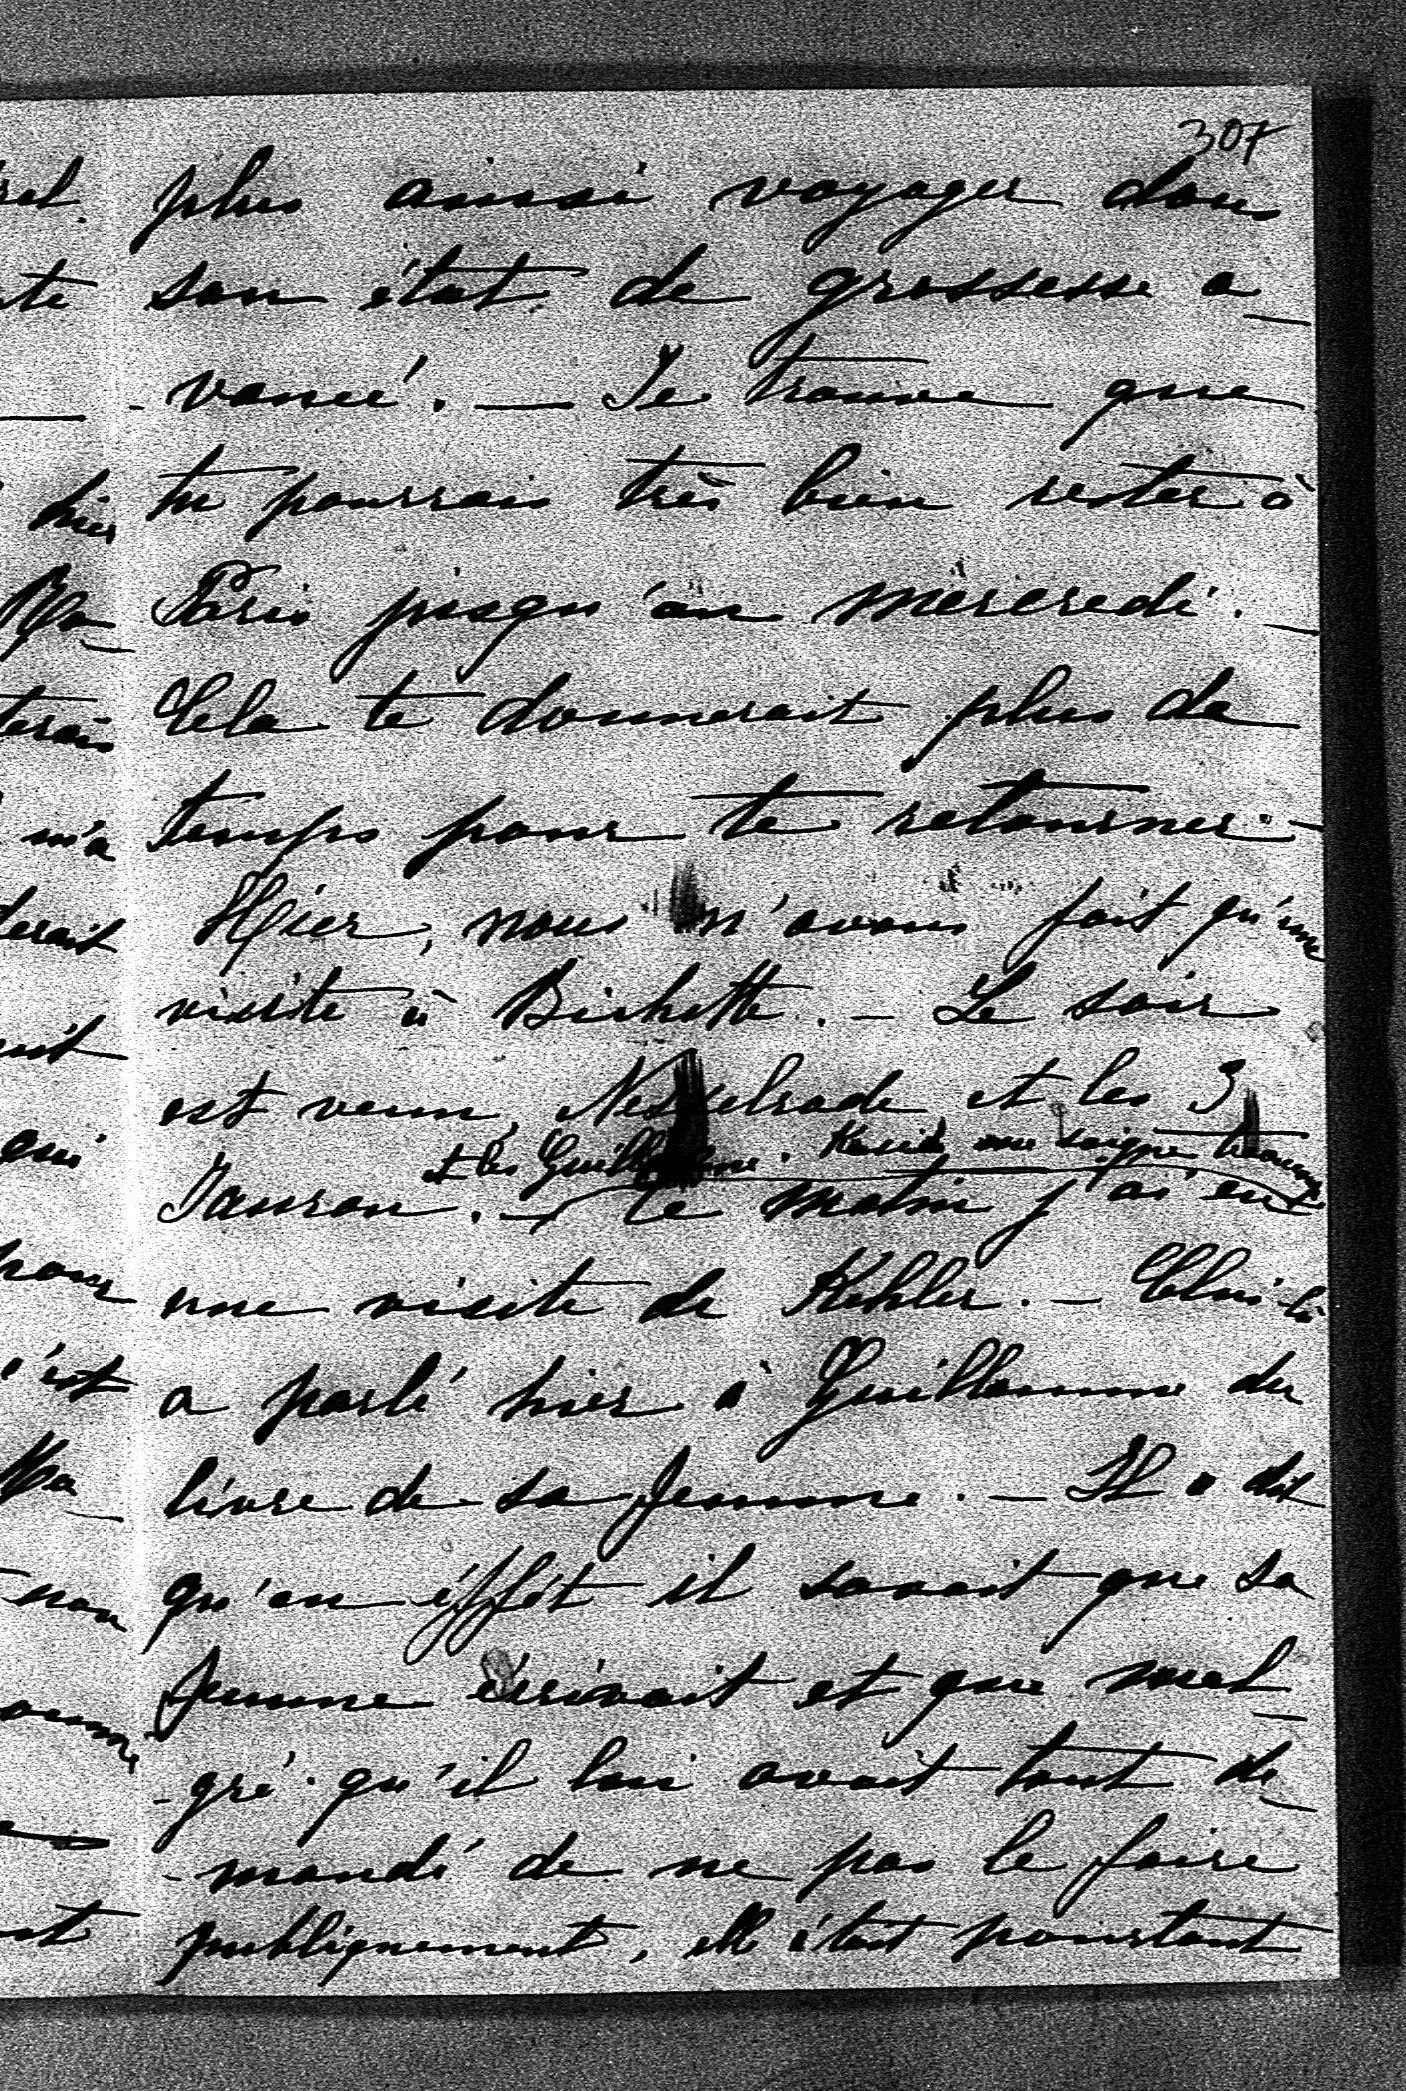 307
plus aussi voyager dans
son état de grossesse a_
- vancé. — Je trouve que
tu pourrais très bien rester à
Paris jusqu'au mercredi. —
Cela te donnerait plus de
temps pour te retourner. —
Hier, nous n'avons fait qu'une
visite à Bichette. — Le soir
est venu, Nesselrode et les 3
et les Guillaume. me soigne beaucoup
Jauron. — Le matin j'ai eu
une visite de Kehler. — Celui-là
a parlé hier à Guillaume du
livre de sa femme. — Il a dit
qu'en éffét il savait que sa
femme écrivait et que mal_
- gré qu'il lui avait tout de_
- mandé de ne pas le faire
publiquement, elle était pourtant
hier
m'a
qui
pour
c'est
non